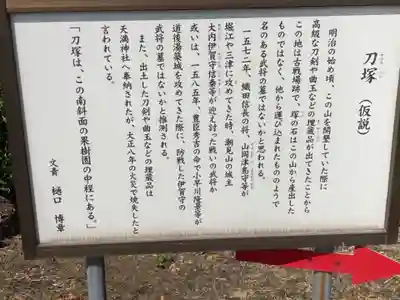 刀塚（仮説）
明治の始め頃、この山を開墾していた際に
高級な刀剣や曲玉などの埋蔵品が出てきたことから
この地は古戦場跡で、塚の石はこの山から産出した
ものではなく、他から運び込まれたもののようで
名のある武将の墓ではないかと思われる。
一五七二年、織田信長の将、山岡津島守等が
堀江や三津に攻めてきた時、潮見山の城主
大内伊賀守信泰等が迎え討った戦いの武将か
或いは、一五八五年、豊臣秀吉の命で小早川隆景等が
道後湯築城を攻めてきた際に、防戦した伊賀守の
武将の墓ではないかと推測される。
また、出土した刀剣や曲玉などの埋蔵品は
天満神社へ奉納されたが、大正八年の火災で焼失したと
言われている。
「刀塚は、この南斜面の果樹園の中程にある。」
文責 樋口 博章